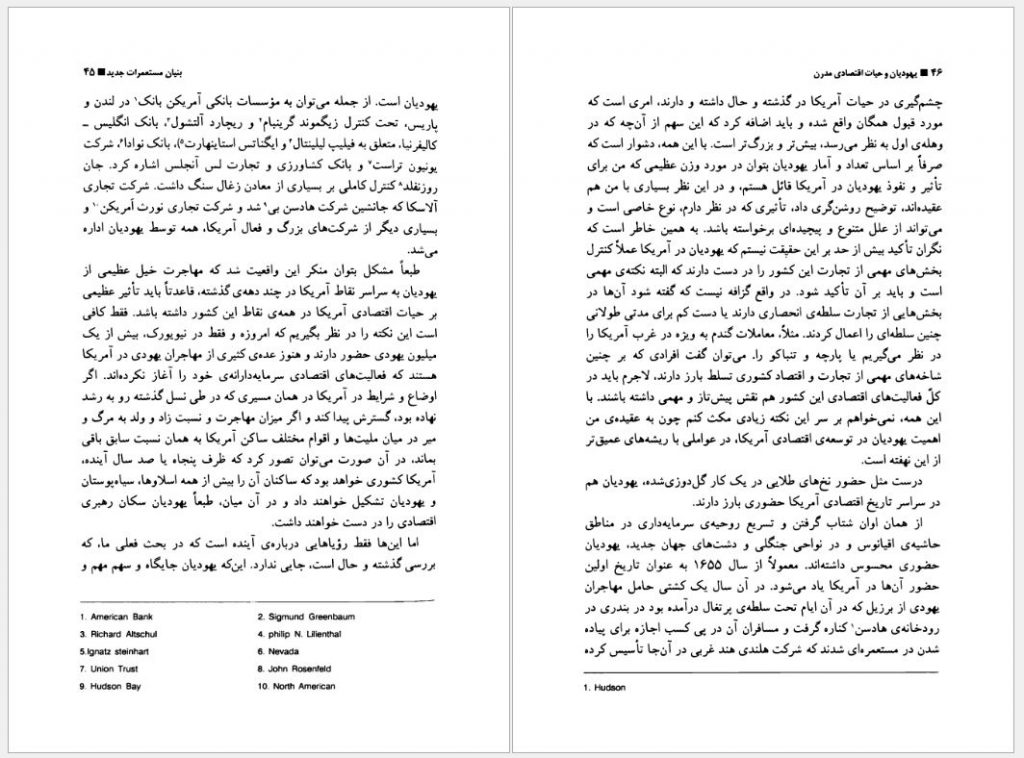 بنیان مستعمرات جدید ■ ۴۵
یهودیان است. از جمله می‌توان به مؤسسات بانکی آمریکن بانک۱ در لندن و
پاریس، تحت کنترل زیگموند گرینبام۲ و ریچارد آلتشول۳، بانک انگلیس ـ
کالیفرنیا، متعلق به فیلیپ لیلینتال۴ و ایگناتس استاینهارت۵)، بانک نوادا۶، شرکت
یونیون تراست۷ و بانک کشاورزی و تجارت لس آنجلس اشاره کرد. جان
روزنفلد۸ کنترل کاملی بر بسیاری از معادن زغال سنگ داشت. شرکت تجاری
آلاسکا که جانشین شرکت هادسن بی۹ شد و شرکت تجاری نورت آمریکن۱۰ و
بسیاری دیگر از شرکت‌های بزرگ و فعال آمریکا، همه توسط یهودیان اداره
می‌شد.
طبعاً مشکل بتوان منکر این واقعیت شد که مهاجرت خیل عظیمی از
یهودیان به سراسر نقاط آمریکا در چند دهه‌ی گذشته، قاعدتاً باید تأثیر عظیمی
بر حیات اقتصادی آمریکا در همه‌ی نقاط این کشور داشته باشد. فقط کافی
است این نکته را در نظر بگیریم که امروزه و فقط در نیویورک، بیش از یک
میلیون یهودی حضور دارند و هنوز عده‌ی کثیری از مهاجران یهودی در آمریکا
هستند که فعالیت‌های اقتصادی سرمایه‌دارانه‌ی خود را آغاز نکرده‌اند. اگر
اوضاع و شرایط در آمریکا در همان مسیری که در طی نسل گذشته رو به رشد
نهاده بود، گسترش پیدا کند و اگر میزان مهاجرت و نسبت زاد و ولد به مرگ و
میر در میان ملیت‌ها و اقوام مختلف ساکن آمریکا به همان نسبت سابق باقی
بماند، در آن صورت می‌توان تصور کرد که ظرف پنجاه یا صد سال آینده،
آمریکا کشوری خواهد بود که ساکنان آن را بیش از همه اسلاوها، سیاه‌پوستان
و یهودیان تشکیل خواهند داد و در آن میان، طبعاً یهودیان سکان رهبری
اقتصادی را در دست خواهند داشت.
اما این‌ها فقط رؤیاهایی درباره‌ی آینده است که در بحث فعلی ما، که
بررسی گذشته و حال است، جایی ندارد. این‌که یهودیان جایگاه و سهم مهم و
1. American Bank 2. Sigmund Greenbaum
3. Richard Altschul 4. philip N. Lilienthal
5.Ignatz steinhart 6. Nevada
7. Union Trust 8. John Rosenfeld
9. Hudson Bay 10. North American
۴۶ ■ یهودیان و حیات اقتصادی مدرن
چشم‌گیری در حیات آمریکا در گذشته و حال داشته و دارند، امری است که
مورد قبول همگان واقع شده و باید اضافه کرد که این سهم از آن‌چه که در
وهله‌ی اول به نظر می‌رسد، بیش‌تر و بزرگ‌تر است. با این همه، دشوار است که
صرفاً بر اساس تعداد و آمار یهودیان بتوان در مورد وزن عظیمی که من برای
تأثیر و نفوذ یهودیان در آمریکا قائل هستم، و در این نظر بسیاری با من هم
عقیده‌اند، توضیح روشن‌گری داد، تأثیری که در نظر دارم، نوع خاصی است و
می‌تواند از علل متنوع و پیچیده‌ای برخواسته باشد. به همین خاطر است که
نگران تأکید بیش از حد بر این حقیقت نیستم که یهودیان در آمریکا عملاً کنترل
بخش‌های مهمی از تجارت این کشور را در دست دارند که البته نکته‌ی مهمی
است و باید بر آن تأکید شود. در واقع گزافه نیست که گفته شود آن‌ها در
بخش‌هایی از تجارت سلطه‌ی انحصاری دارند یا دست کم برای مدتی طولانی
چنین سلطه‌ای را اعمال کردند. مثلاً، معاملات گندم به ویژه در غرب آمریکا را
در نظر می‌گیریم یا پارچه و تنباکو را. می‌توان گفت افرادی که بر چنین
شاخه‌های مهمی از تجارت و اقتصاد کشوری تسلط بارز دارند، لاجرم باید در
کلّ فعالیت‌های اقتصادی این کشور هم نقش پیش‌تاز و مهمی داشته باشند. با
این همه، نمی‌خواهم بر سر این نکته زیادی مکث کنم چون به عقیده‌ی من
اهمیت یهودیان در توسعه‌ی اقتصادی آمریکا، در عواملی با ریشه‌های عمیق‌تر
از این نهفته است.
درست مثل حضور نخ‌های طلایی در یک کار گل‌دوزی‌شده، یهودیان هم
در سراسر تاریخ اقتصادی آمریکا حضوری بارز دارند.
از همان اوان شتاب گرفتن و تسریع روحیه‌ی سرمایه‌داری در مناطق
حاشیه‌ی اقیانوس و در نواحی جنگلی و دشت‌های جهان جدید، یهودیان
حضوری محسوس داشته‌اند. معمولاً از سال ۱۶۵۵ به عنوان تاریخ اولین
حضور آن‌ها در آمریکا یاد می‌شود. در آن سال یک کشتی حامل مهاجران
یهودی از برزیل که در آن ایام تحت سلطه‌ی پرتغال درآمده بود در بندری در
رودخانه‌ی هادسن۱ کناره گرفت و مسافران آن در پی کسب اجازه برای پیاده
شدن در مستعمره‌ای شدند که شرکت هلندی هند غربی در آن‌جا تأسیس کرده
1. Hudson